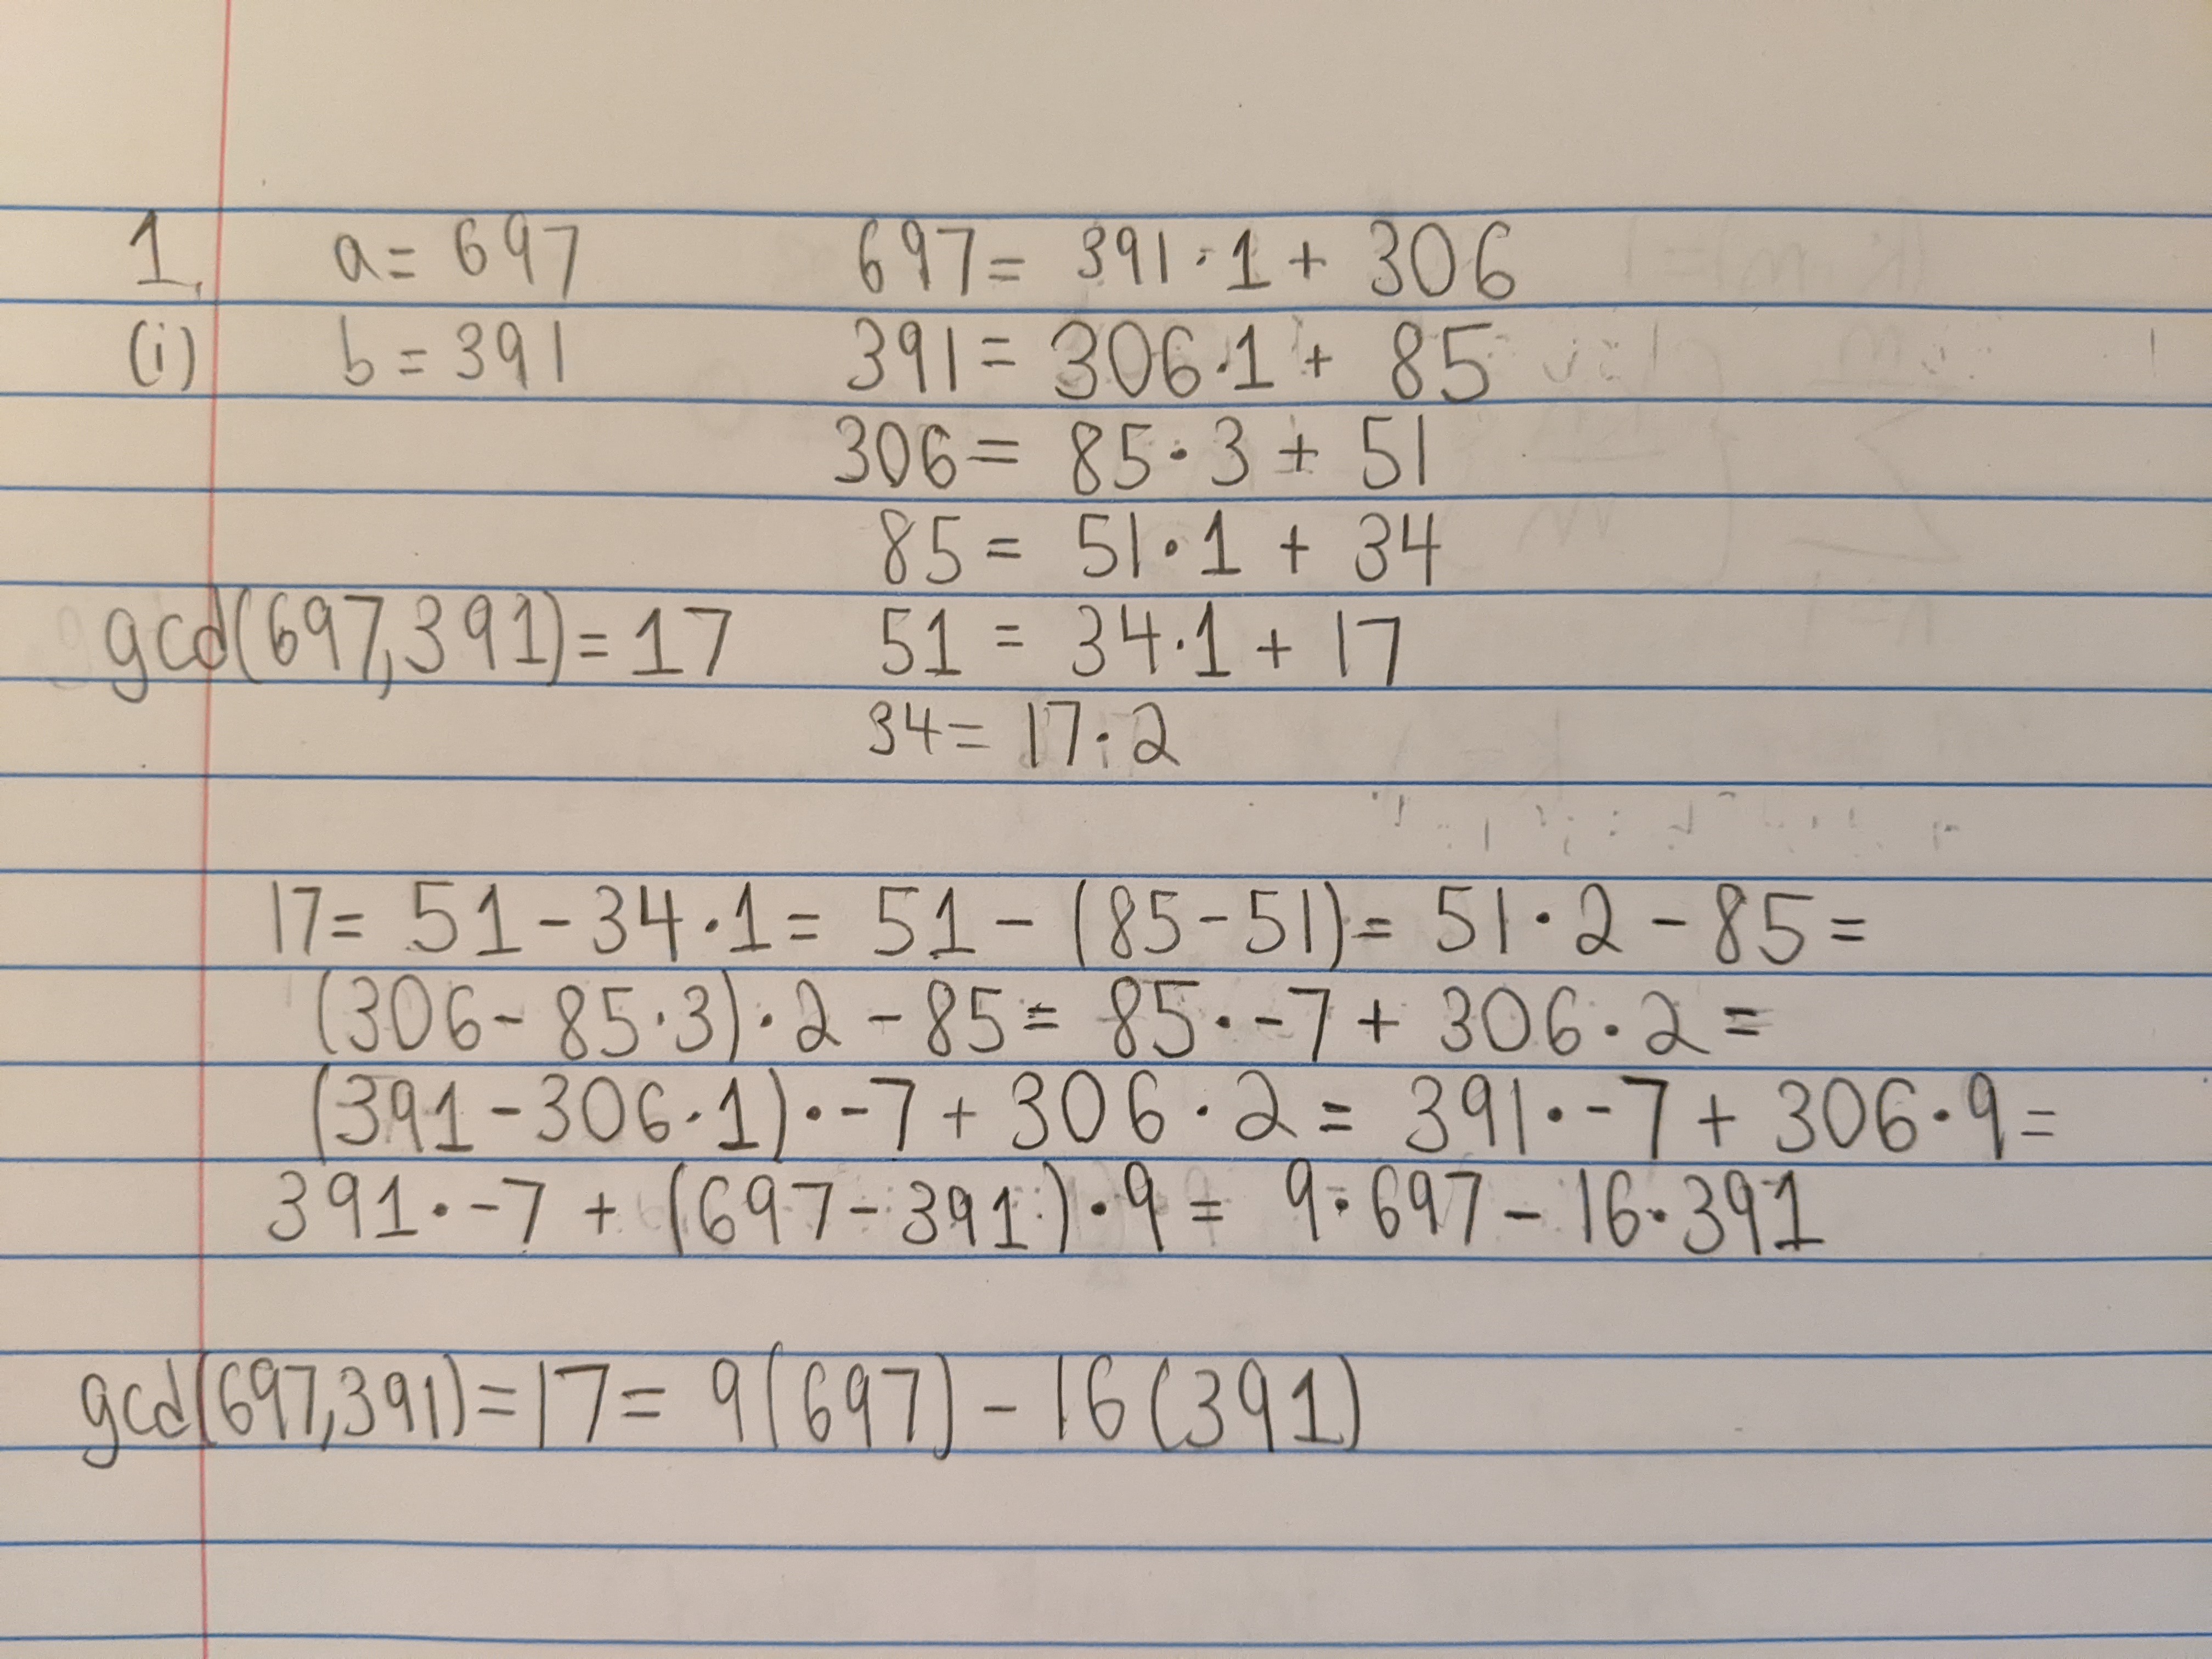 1. a = 697 697 = 391·1 + 306
(i) b = 391 391 = 306·1 + 85
306 = 85·3 + 51
85 = 51·1 + 34
gcd(697,391) = 17 51 = 34·1 + 17
34 = 17·2
17 = 51 - 34·1 = 51 - (85 - 51) = 51·2 - 85 =
(306 - 85·3)·2 - 85 = 85·-7 + 306·2 =
(391 - 306·1)·-7 + 306·2 = 391·-7 + 306·9 =
391·-7 + (697 - 391)·9 = 9·697 - 16·391
gcd(697,391) = 17 = 9(697) - 16(391)